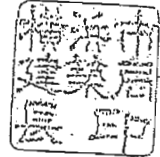 横浜市
建築局
長印